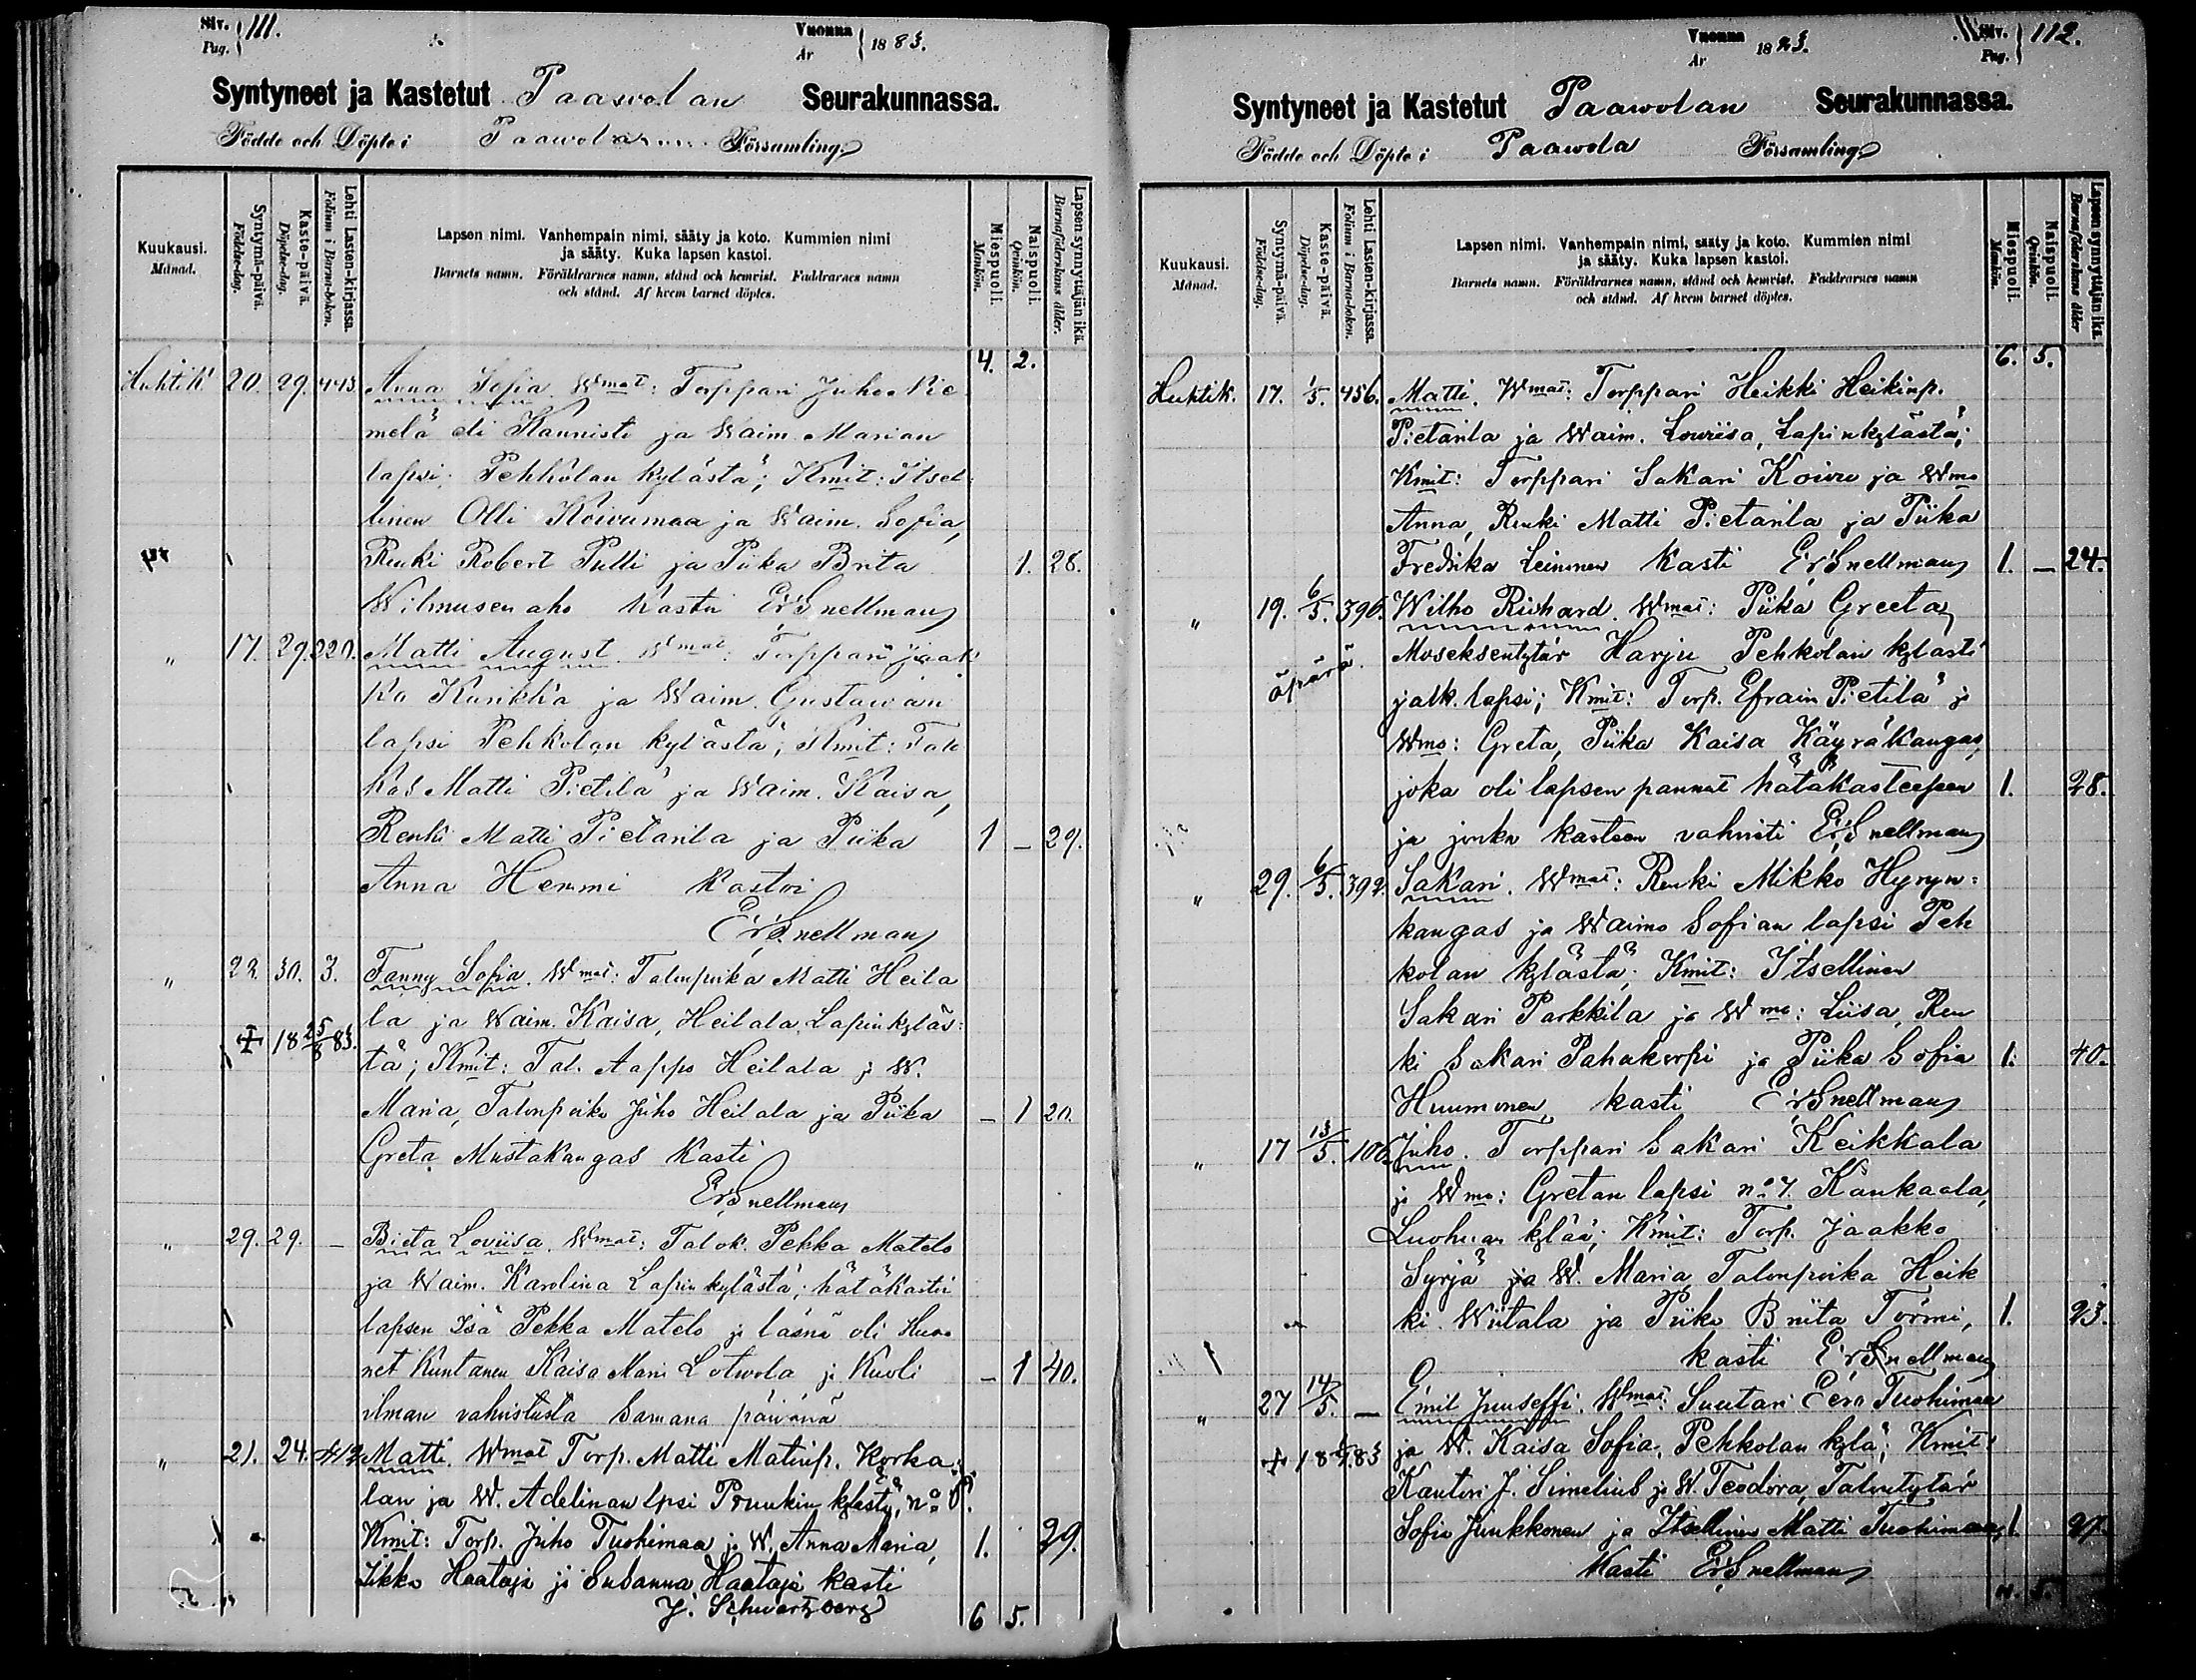 Siv. 111.
Pag.
Vuonna 1883.
År
Syntyneet ja Kastetut Paawolan Seurakunnassa.
Födde och Döpte i Paawolan Församling.
Kuukausi.
Månad.
Syntymä-päivä.
Födelse-dag.
Kaste-päivä.
Döpelse-dag.
Lehti Lasten-kirjassa.
Folium i Barna-boken.
Lapsen nimi. Vanhempain nimi, sääty ja koto. Kummien nimi
ja sääty. Kuka lapsen kastoi.
Barnets namn. Föräldrarnes namn, stånd och hemvist. Faddrarnes namn
och stånd. Af hvem barnet döptes.
Miespuoli.
Mankön.
Naispuoli.
Qvinkön.
Lapsen synnyttäjän ikä.
Barnaföderskans ålder.
4. 2.
Huhtik 20. 29. 443. Anna Sofia. Wmat: Torppari Juho Nie
melä eli Kannisto ja Waim. Marian
lapsi; Pehkolan kylästä; Kmit: Itsel
linen Olli Koivumaa ja Waim. Sofia,
Renki Robert Pulli ja Piika Brita 1. 28.
Wilmusenaho kastoi ErSnellman
" 17. 29. 220. Matti August. Wmat: Torppari Jaak
ko Kurikka ja Waim. Gustawan
lapsi Pehkolan kylästä; Kmit: Talo
kas Matti Pietilä ja Waim. Kaisa,
Renki Matti Pietarila ja Piika 1 – 29.
Anna Hemmi kastoi
ErSnellman
" 22. 30. 3. Fanny Sofia. Wmat: Talonpoika Matti Heila
la ja Waim. Kaisa, Heilala, Lapinkyläs:
+ 18 25/8 83. tä; Kmit: Tal. Aappo Heilala ja W.
Maria, Talonpoika Juho Heilala ja Piika – 1 20.
Greta Mustakangas kasti
ErSnellman
" 29. 29. – Brita Loviisa. Wmat: Talok. Pekka Matelo
ja Waim. Karolina Lapinkylästä; hätäkastoi
lapsen Isä Pekka Matelo ja läsnä oli Huo
net Kuntanen Kaisa Mari Lotwola ja Kuoli – 1 40.
ilman vahvistusta samana päivänä
" 21. 24. Matti. Wmat Torp. Matti Matinp. Korka
lan ja W. Adelinan lpsi Pruukin kylästä, no
Kmit: Torp. Juho Tuohimaa ja W. Anna Maria, 1. 29.
Iikka Haataja ja Susanna Haataja kasti
J. Schwartzberg
6 5.
Vuonna 1883.
År
Siv. 112.
Pag.
Syntyneet ja Kastetut Paawolan Seurakunnassa.
Födde och Döpte i Paawola Församling.
Kuukausi.
Månad.
Syntymä-päivä.
Födelse-dag.
Kaste-päivä.
Döpelse-dag.
Lehti Lasten-kirjassa.
Folium i Barna-boken.
Lapsen nimi. Vanhempain nimi, sääty ja koto. Kummien nimi
ja sääty. Kuka lapsen kastoi.
Barnets namn. Föräldrarnes namn, stånd och hemvist. Faddrarnes namn
och stånd. Af hvem barnet döptes.
Miespuoli.
Mankön.
Naispuoli.
Qvinkön.
Lapsen synnyttäjän ikä.
Barnaföderskans ålder
6. 5.
Huhtik. 17. 1/5. 456. Matti. Wmat: Torppari Heikki Heikinp.
Pietarila ja Waim. Lowiisa, Lapinkylästä;
Kmit: Torppari Sakari Koivu ja Wmo
Anna, Renki Matti Pietarila ja Piika
Fredrika Leinonen kasti ErSnellman 1. – 24.
" 19. 6/5. 396. Wilho Richard. Wmat: Piika Greeta
Moseksentytär Harju Pehkolan kylästä
äpärä. jalk. lapsi; Kmit: Torp. Efraim Pietilä ja
Wmo: Greta, Piika Kaisa Käyräkangas,
joka oli lapsen pannut hätäkasteeseen 1. 28.
ja jonka kasteen vahvisti ErSnellman
" 29. 6/5. 392. Sakari. Wmat: Renki Mikko Hyryn=
kangas ja Waimo Sofian lapsi Peh
kolan kylästä; Kmit: Itsellinen
Sakari Parkkila ja Wmo: Liisa, Ren
ki Sakari Pahakorpi ja Piika Sofia 1. 40.
Huumonen, kasti ErSnellman
" 17 13/5. 106. Juho. Torppari Sakari Keikkala
ja Wmo: Gretan lapsi no 7. Kankaala,
Luohuan kylää; Kmit: Torp. Jaakko
Syrjä ja W. Maria, Talonpoika Heik
ki Wiitala ja Piika Briita Törmi, 1. 23.
kasti ErSnellman
" 27 14/5. – Emil Juuseffi. Wmat: Suutari Eero Tuohimaa
ja W. Kaisa Sofia, Pehkolan kylä; Kmit:
Kanttori J. Simelius ja W. Teodora, Talontytär
Sofia Juukkonen ja Itsellinen Matti Tuohimaa, 1.
Kasti ErSnellman
5.